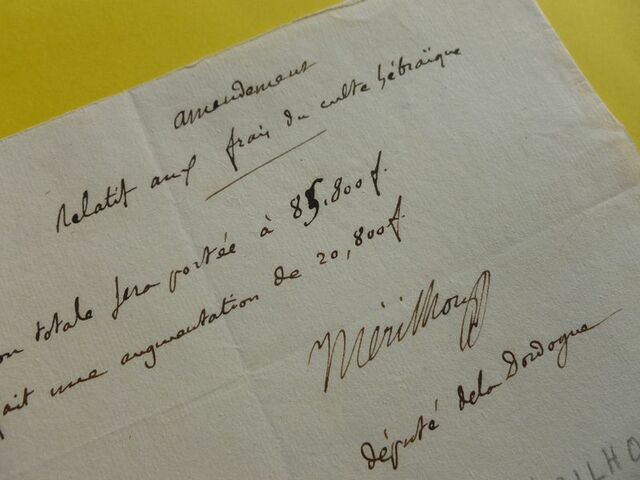 amendement
Relatif aux frais du culte hébraïque
on totale sera portée à 85,800 f.
ait une augmentation de 20,800 f.
Mérilhou
député de la Dordogne
ILHO